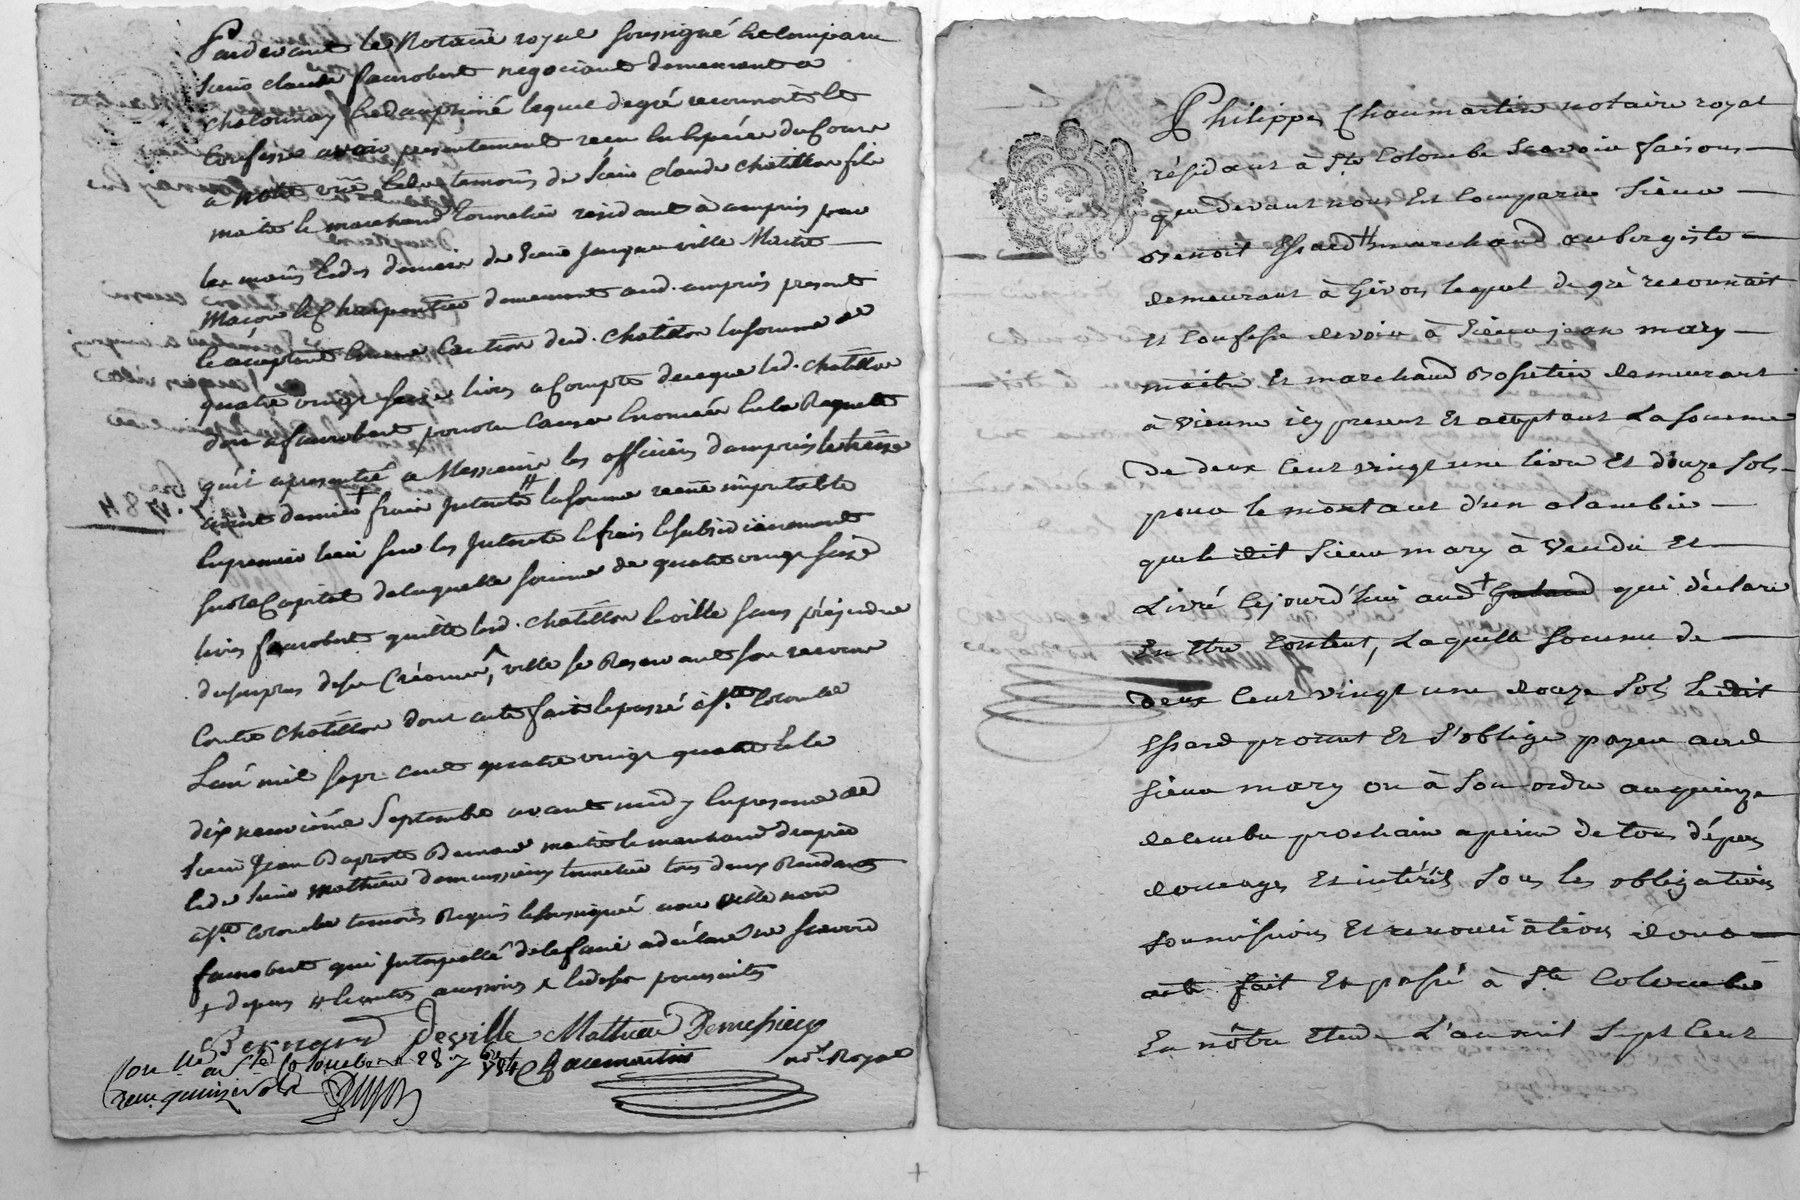 Pardevant le Notaire royal soussigné a comparu
Sieur claude faurobert negociant demeurant a
chalonnay en dauphiné lequel de gré reconnoit et
Confesse avoir presentement recu en Espece du Cours
a Notre vue et des temoins de Sieur Claude chatillon fils
maitre et marchand tonnelier residant à ampuis pour
les mains et des deniers de Sieur Jacques ville Maitre
Macon et Charpentier demeurant aud. ampuis present
et acceptant Comme Caution dud. Chatillon la somme de
quatre vingt seize livres a Compte de ce que led. chatillon
doit a faurobert pour la Cause enoncée en la Requette
qu'il a presentée a Messieurs les officiers d'ampuis
frais Interets la somme recue imputable
En premier lieu sur les Interets et frais et subsidiairement
sur le Capital de laquelle somme de quatre vingt seize
livres faurobert quitte led. chatillon et ville sans prejudice
du surplus de sa Créance, ville se Reservant son recours
Contre Chatillon dont acte fait et passé à Ste. Colombe
L'an mil sept cent quatre vingt quatre et le
dix neuvieme Septembre avant midy En presence de
Sieur Jean Baptiste Bernard maitre et marchand drapier
et de Sieur Mathieu tonnelier tous deux Residants
à Ste. Colombe temoins Requis et soussignés avec ville non
faurobert qui Interpellé de le faire a declaré ne scavoir
+ depens # et autres accessoires et poursuites
Bernard Deville Mathieu
Chaumartin not. Royal
Con.llé à Ste Colombe le 28 7bre 1784
recu quinze sols
Philippes Chaumartin notaire royal
résidant à Ste Colombe Scavoir faisons
que devant nous Est Comparu Sieur
Benoit Essard marchand aubergiste
demeurant à Givors lequel de gré reconnait
Et Confesse devoir à Sieur jean mary
maitre Et marchand demeurant
à Vienne icy present Et acceptant La somme
De deux Cent vingt une livre Et douze sols
pour le montant d'un alambic
que le dit Sieur mary à Vendu Et
Livré cejourd'hui aud + qui déclare
En Etre Content, Laquelle Somme de
deux Cent vingt une douze Sols le dit
Essard promet Et s'oblige payer aud
Sieur mary ou à Son ordre au quinze
decembre prochain a peine de tous dépens
domages Et intérêts Sous les obligations
soumissions Et renonciations dont
acte fait Et passé à Ste Colombe
En nôtre Etude L'an mil Sept Cent